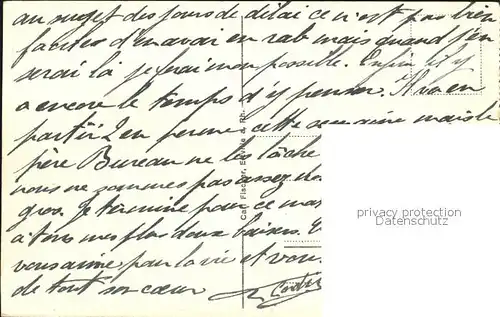 au sujet des jours de délai ce n'est pas bien
facile d'en avoir en rab mais quand j'en
serai là je ferai mon possible. Enfin il y
a encore le temps d'y penser. Il va en
partir 2 en perme cette semaine mais le
père Bureau ne les lâche
nous ne sommes pas assez
gros. Je termine pour ce
à tous mes plus doux baisers.
vous aime pour la vie et vous
de tout son cœur
Carl Fischer,
privacy protection
Datenschutz